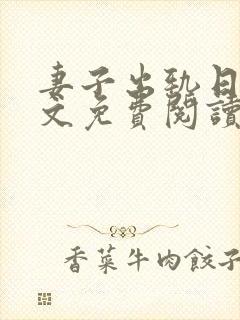 妻子出勁日
文免費閱讀
香菜牛肉餃子